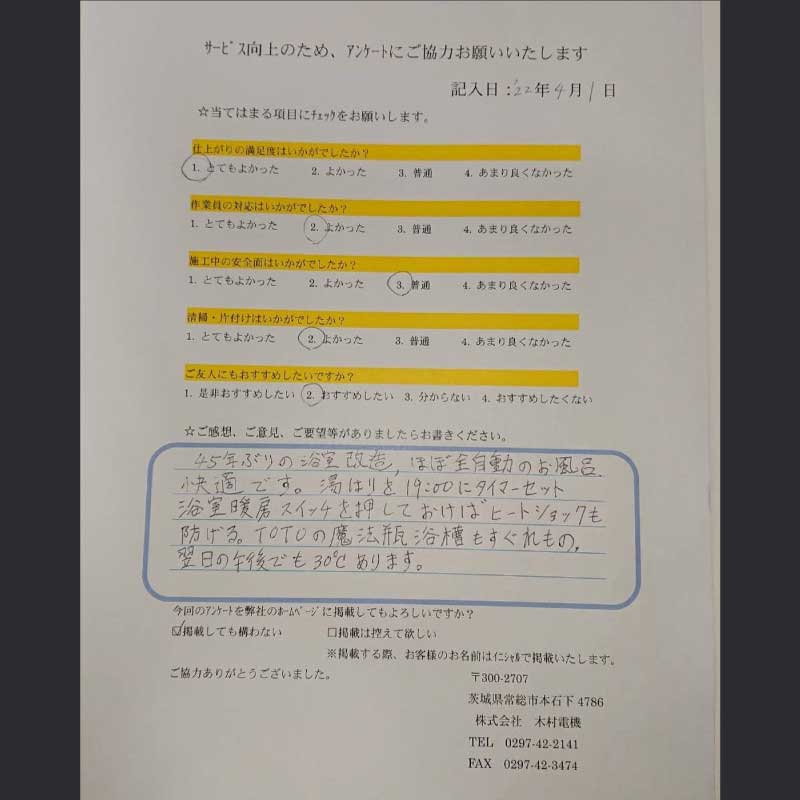 ｻｰﾋﾞｽ向上のため、ｱﾝｹｰﾄにご協力お願いいたします
記入日：'22年4月1日
☆当てはまる項目にﾁｪｯｸをお願いします。
仕上がりの満足度はいかがでしたか？
1. とてもよかった 2. よかった 3. 普通 4. あまり良くなかった
作業員の対応はいかがでしたか？
1. とてもよかった 2. よかった 3. 普通 4. あまり良くなかった
施工中の安全面はいかがでしたか？
1. とてもよかった 2. よかった 3. 普通 4. あまり良くなかった
清掃・片付けはいかがでしたか？
1. とてもよかった 2. よかった 3. 普通 4. あまり良くなかった
ご友人にもおすすめしたいですか？
1. 是非おすすめしたい 2. おすすめしたい 3. 分からない 4. おすすめしたくない
☆ご感想、ご意見、ご要望等がありましたらお書きください。
45年ぶりの浴室改造，ほぼ全自動のお風呂、
快適です。湯はりを19:00にタイマーセット
浴室暖房スイッチを押しておけばヒートショックも
防げる。TOTOの魔法瓶浴槽もすぐれもの。
翌日の午後でも30℃あります。
今回のｱﾝｹｰﾄを弊社のﾎｰﾑﾍﾟｰｼﾞに掲載してもよろしいですか？
☑掲載しても構わない □掲載は控えて欲しい
※掲載する際、お客様のお名前はｲﾆｼｬﾙで掲載いたします。
ご協力ありがとうございました。
〒300-2707
茨城県常総市本石下 4786
株式会社 木村電機
TEL 0297-42-2141
FAX 0297-42-3474